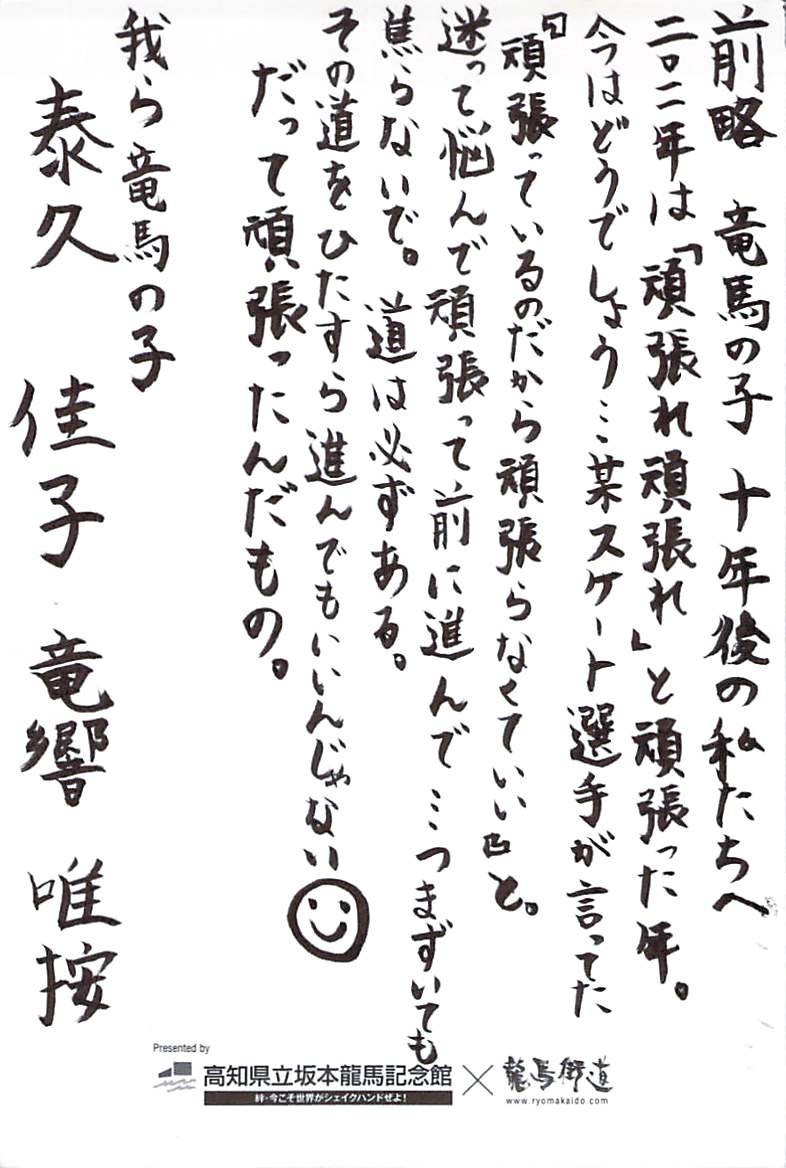 前略 竜馬の子 十年後の私たちへ
二〇一二年は「頑張れ頑張れ」と頑張った年。
今はどうでしょう…某スケート選手が言ってた
『頑張っているのだから頑張らなくていい』と。
迷って悩んで頑張って前に進んで…つまずいても
焦らないで。道は必ずある。
その道をひたすら進んでもいいんじゃない
だって頑張ったんだもの。
我ら竜馬の子
泰久 佳子 竜響 唯按
Presented by
高知県立坂本龍馬記念館
絆・今こそ世界がシェイクハンドぜよ!
×
龍馬街道
www.ryomakaido.com